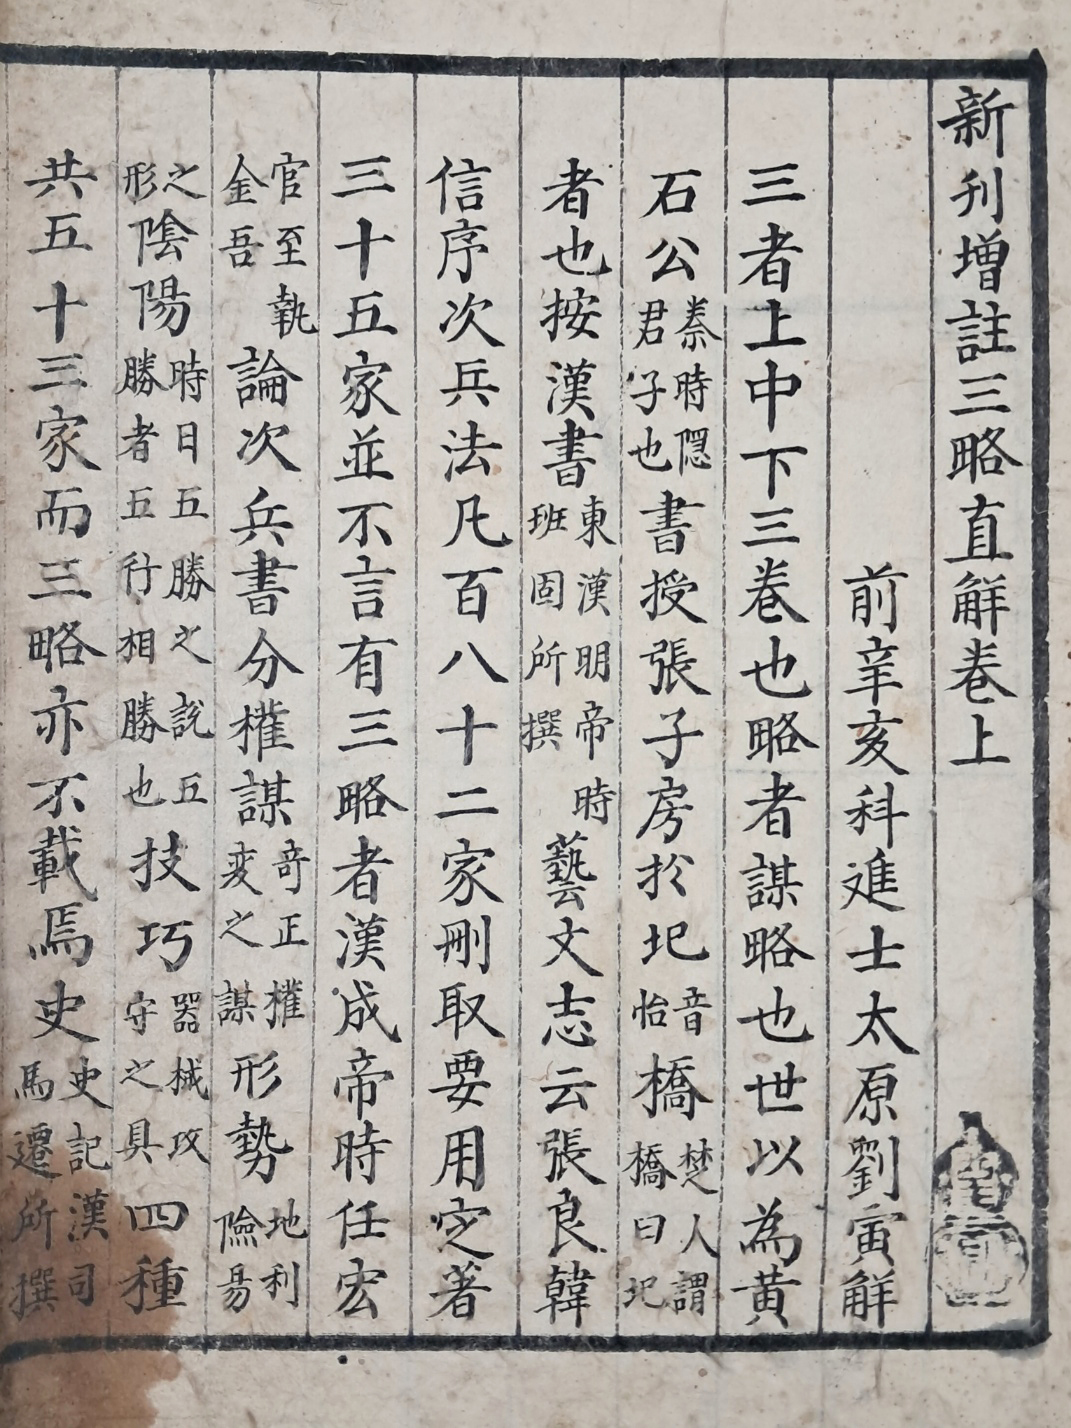 新刊增註三略直解卷上
前辛亥科進士太原劉寅解
三者上中下三卷也略者謀略也世以為黃
石公秦時隱君子也書授張子房於圯音怡橋楚人謂橋曰圯
者也按漢書東漢明帝時班固所撰藝文志云張良韓
信序次兵法凡百八十二家刪取要用定著
三十五家並不言有三略者漢成帝時任宏
官至執金吾論次兵書分權謀奇正權變之謀形勢地利險易
之形陰陽時日五勝之說五勝者五行相勝也技巧器械攻守之具四種
共五十三家而三略亦不載焉史史記漢司馬遷所撰